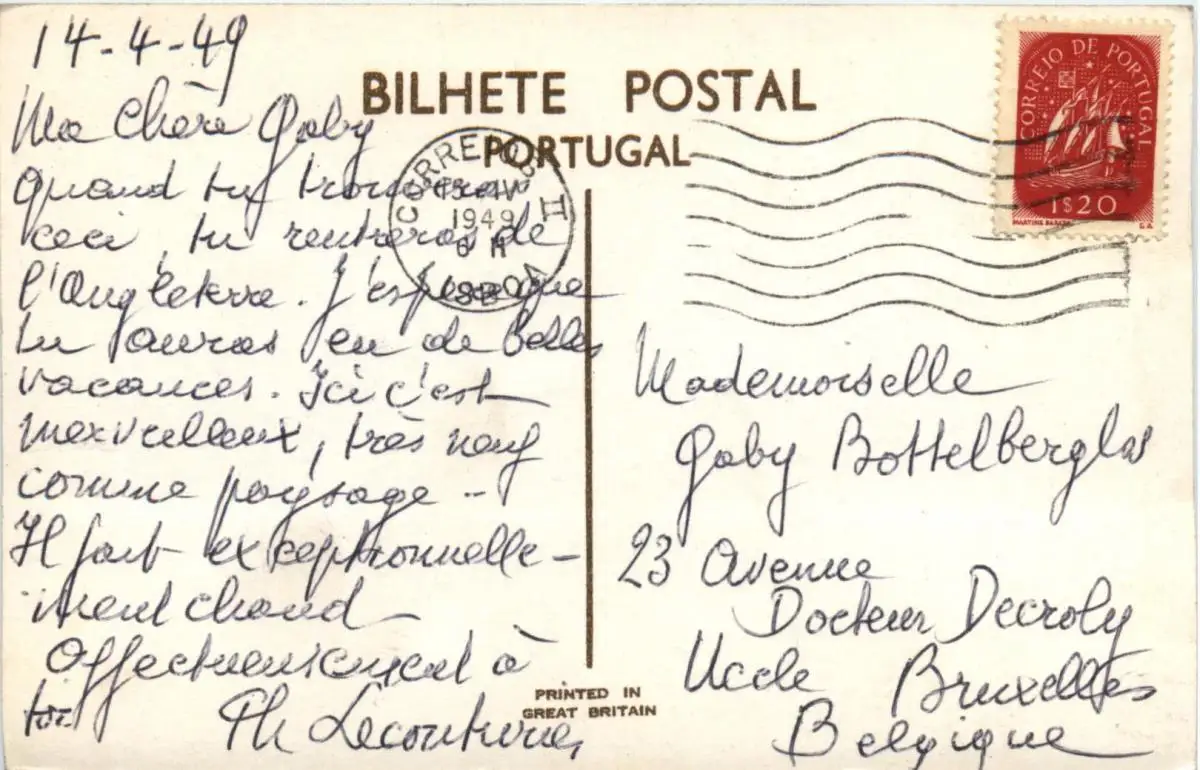 14-4-49
BILHETE POSTAL
PORTUGAL
Ma chère Gaby
Quand tu trouveras
ceci, tu rentreras de
l'Angleterre. J'espère que
tu auras eu de belles
vacances. Ici c'est
merveilleux, très neuf
comme paysage -
Il fait exceptionnelle-
ment chaud
Affectueusement à
toi
Ph
PRINTED IN
GREAT BRITAIN
CORREIO DE PORTUGAL
1$20
1949
LISBOA
II
Mademoiselle
Gaby
23 Avenue
Docteur Decroly
Uccle Bruxelles
Belgique